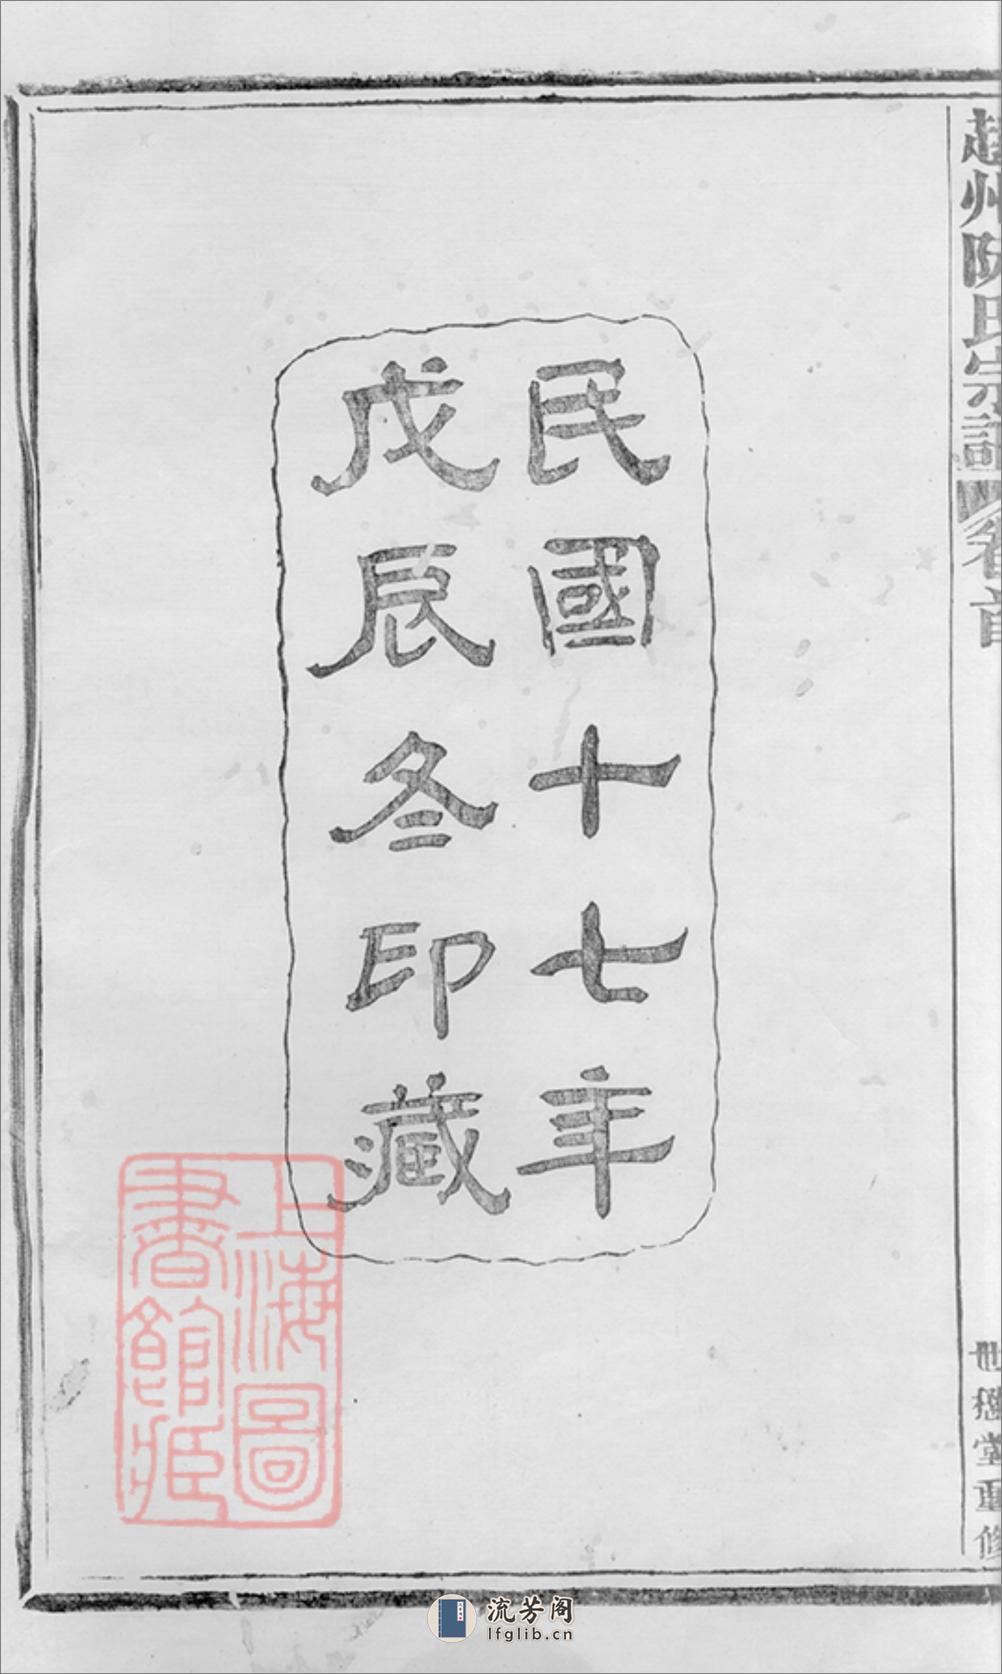 趙州阮氏宗譜
卷首
世德堂重修
民國十七年
戊辰冬印藏
上海圖
書館藏
流芳阁
lfglib.cn